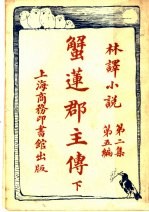 林譯小説
第二集
第五編
蟹蓮郡主傳 下
上海商務印書館出版